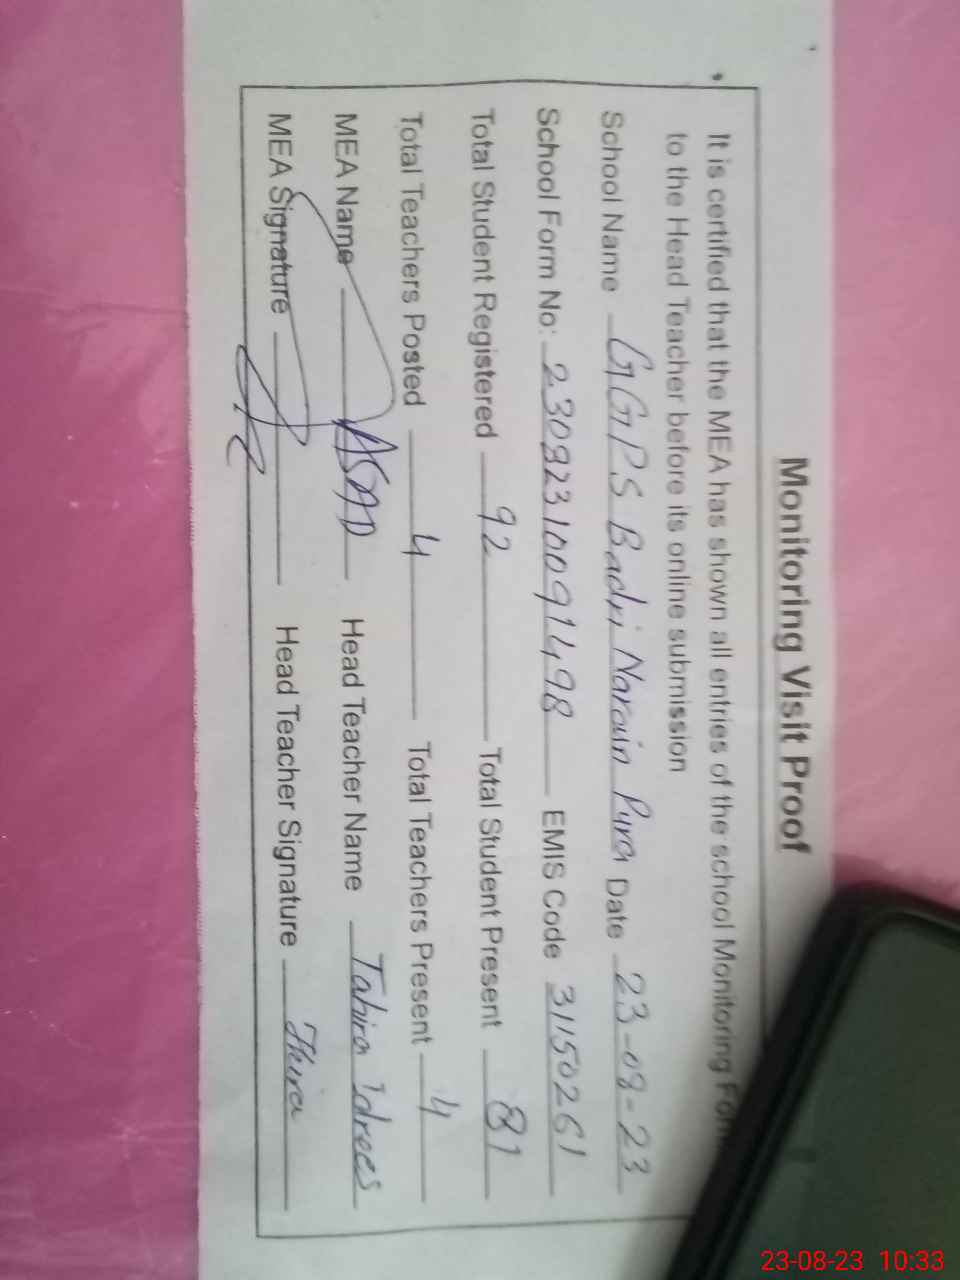 Monitoring Visit Proof
It is certified that the MEA has shown all entries of the school Monitoring Form
to the Head Teacher before its online submission
School Name GGPS Badri Narain Pura Date 23-08-23
School Form No: 23082310091498 EMIS Code 31150261
Total Student Registered 92 Total Student Present 81
Total Teachers Posted 4 Total Teachers Present 4
MEA Name ASAD Head Teacher Name Tahira Idrees
MEA Signature Head Teacher Signature
23-08-23 10:33